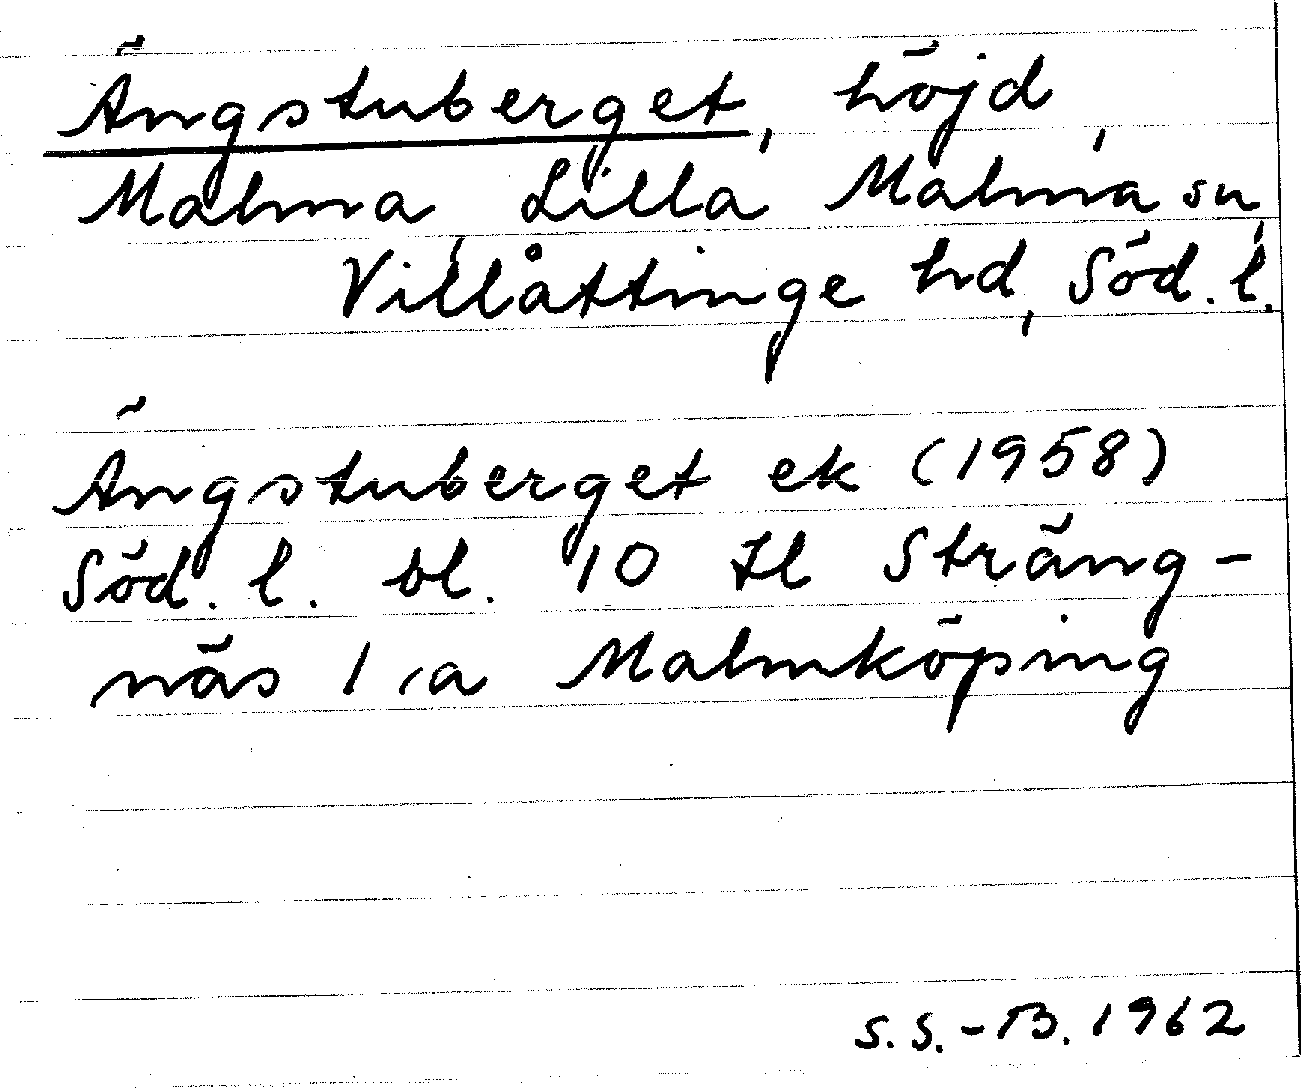 Ängstuberget, höjd,
Malma, Lilla Malma sn,
Villåttinge hd, Söd. l.
Ängstuberget ek (1958)
Söd. l. bl. 10 tl Sträng-
näs 1, a Malmköping
S.S.-B. 1962